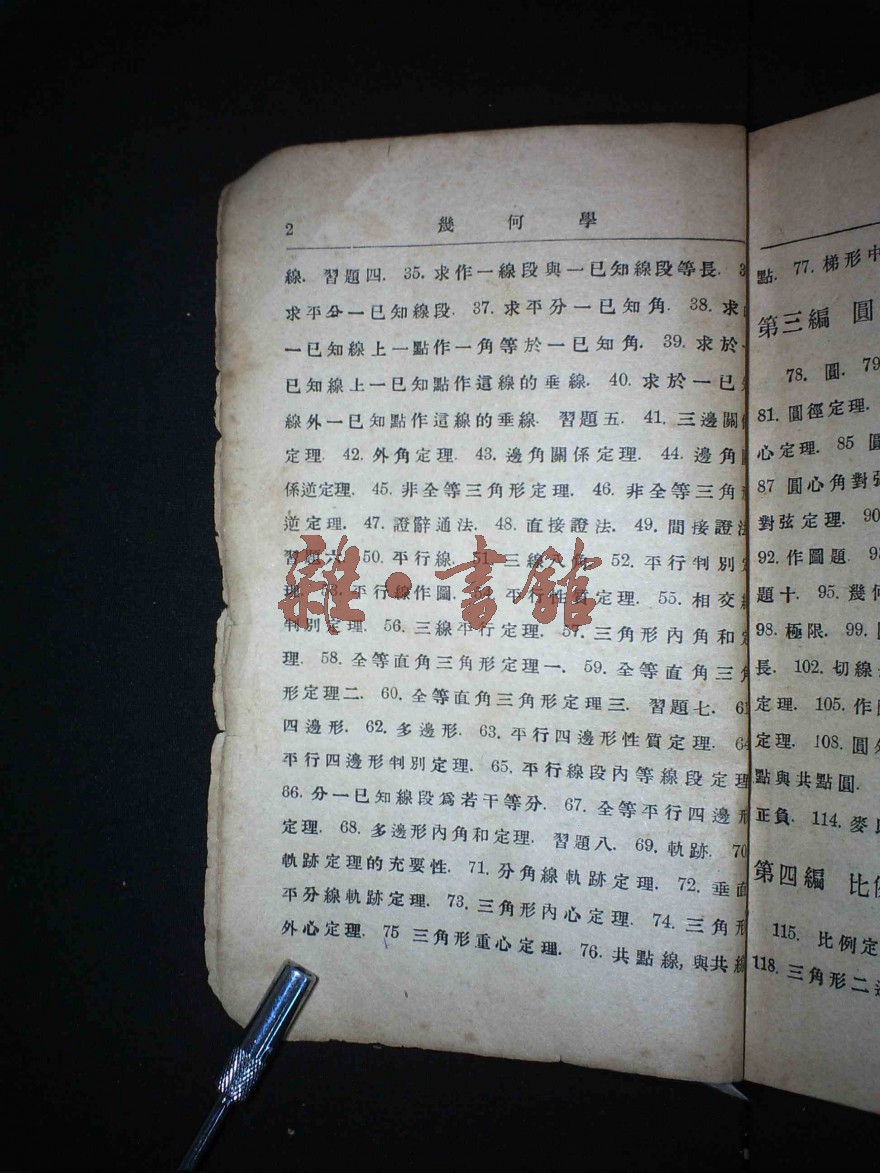 2 幾何學
線. 習題四. 35. 求作一線段與一已知線段等長.
求平分一已知線段. 37. 求平分一已知角. 38. 求
一已知線上一點作一角等於一已知角. 39. 求於
已知線上一已知點作這線的垂線. 40. 求於一已
線外一已知點作這線的垂線. 習題五. 41. 三邊關
定理. 42. 外角定理. 43. 邊角關係定理. 44. 邊角
係逆定理. 45. 非全等三角形定理. 46. 非全等三角
逆定理. 47. 證辭通法. 48. 直接證法. 49. 間接證
習題六. 50. 平行線. 51. 三線八角. 52. 平行判別
理. 53. 平行線作圖. 54. 平行性質定理. 55. 相交
判別定理. 56. 三線平行定理. 57. 三角形內角和
理. 58. 全等直角三角形定理一. 59. 全等直角三
形定理二. 60. 全等直角三角形定理三. 習題七. 61
四邊形. 62. 多邊形. 63. 平行四邊形性質定理. 64
平行四邊形判別定理. 65. 平行線段內等線段定理
66. 分一已知線段爲若干等分. 67. 全等平行四邊
定理. 68. 多邊形內角和定理. 習題八. 69. 軌跡. 70
軌跡定理的充要性. 71. 分角線軌跡定理. 72. 垂直
平分線軌跡定理. 73. 三角形內心定理. 74. 三角形
外心定理. 75 三角形重心定理. 76. 共點線, 與共線
點. 77. 梯形中
第三編 圓
78. 圓. 79
81. 圓徑定理.
心定理. 85 圓
87 圓心角對弦
對弦定理. 90
92. 作圖題.
題十. 95. 幾何
98. 極限. 99.
長. 102. 切線
定理. 105. 作
定理. 108. 圓
點與共點圓.
正負. 114. 麥
第四編 比例
115. 比例定
118. 三角形二邊
雜·書館